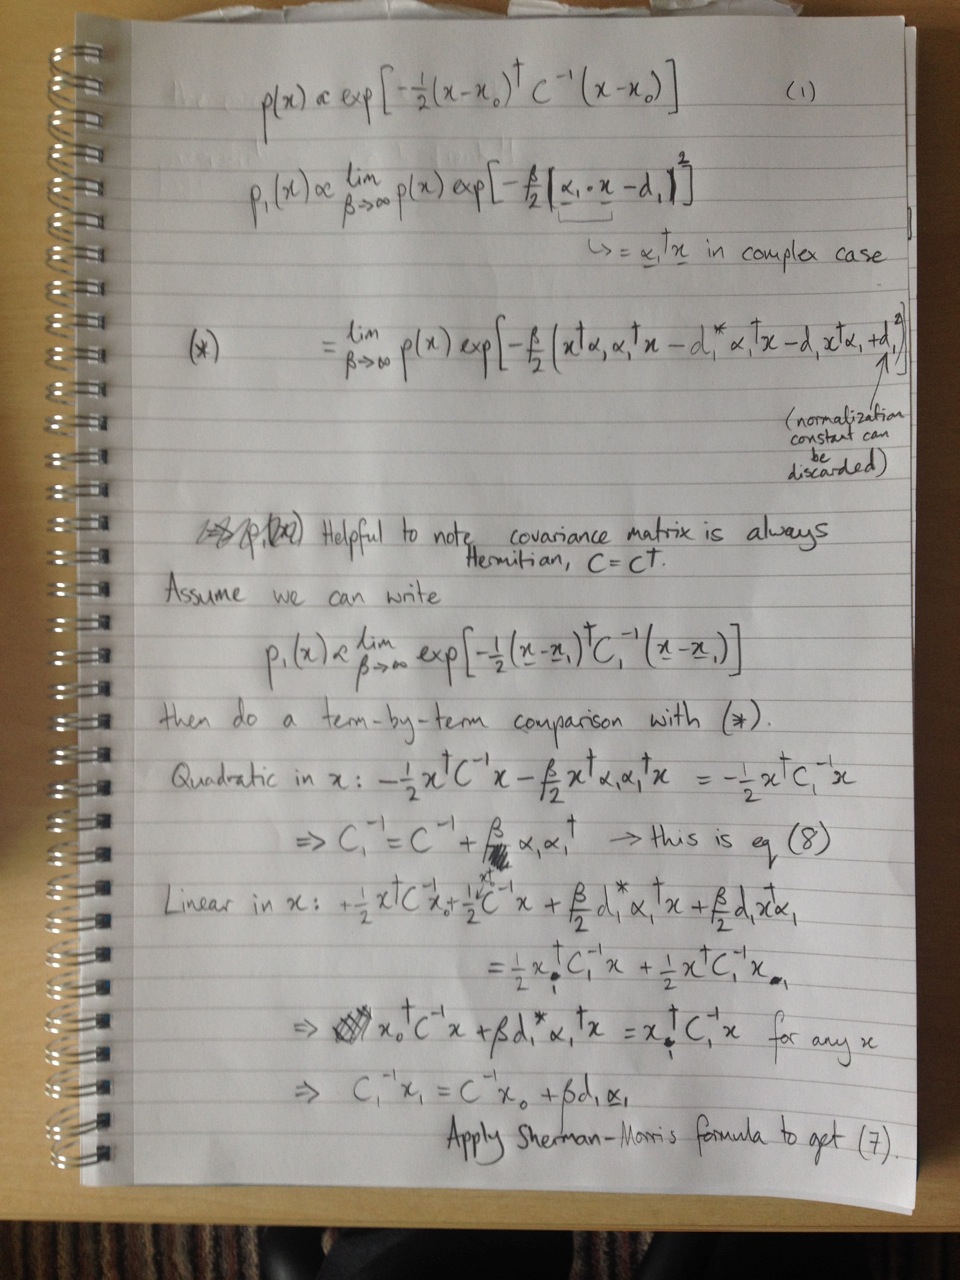 p(x) ∝ exp[-½(x-x₀)†C⁻¹(x-x₀)] (1)
p₁(x) ∝ lim β→∞ p(x) exp[-β/2 (α₁·x - d₁)²]
↳ = α₁†x in complex case
(*) = lim β→∞ p(x) exp[-β/2 (x†α₁α₁†x - d₁*α₁†x - d₁x†α₁ + d₁²)]
(normalization
constant can
be
discarded)
Helpful to note covariance matrix is always
Hermitian, C = C†.
Assume we can write
p₁(x) ∝ lim β→∞ exp[-½(x-x₁)†C₁⁻¹(x-x₁)]
then do a term-by-term comparison with (*).
Quadratic in x: -½x†C⁻¹x - β/2 x†α₁α₁†x = -½x†C₁⁻¹x
⇒ C₁⁻¹ = C⁻¹ + β α₁α₁† → this is eq (8)
Linear in x: +½x†C⁻¹x₀ + ½x₀†C⁻¹x + β/2 d₁*α₁†x + β/2 d₁x†α₁
= ½x₁†C₁⁻¹x + ½x†C₁⁻¹x₁
⇒ x₀†C⁻¹x + βd₁*α₁†x = x₁†C₁⁻¹x for any x
⇒ C₁⁻¹x₁ = C⁻¹x₀ + βd₁α₁
Apply Sherman-Morris formula to get (7).